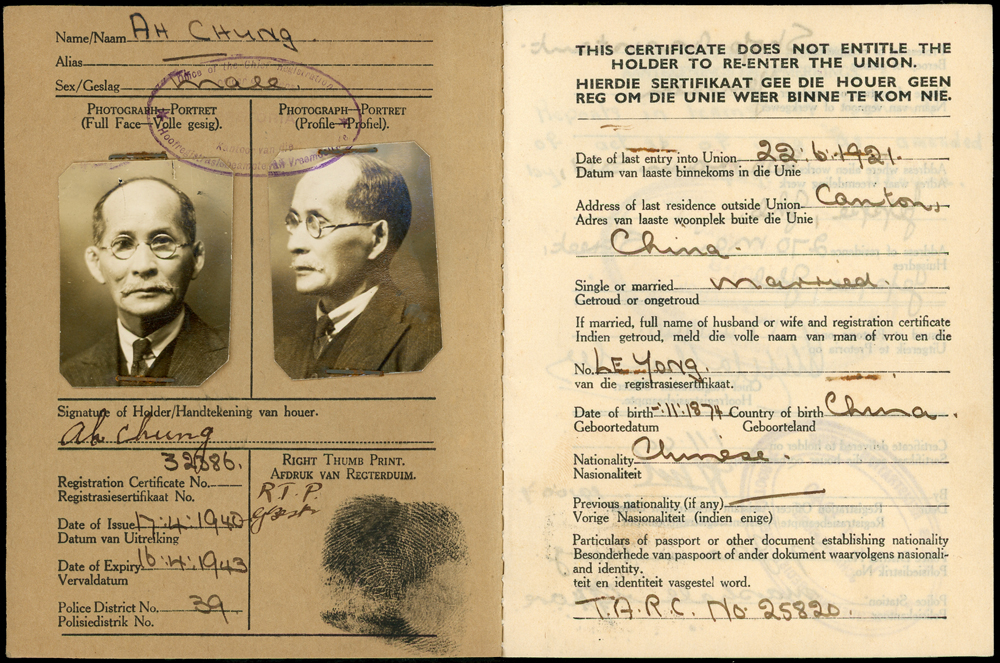 Name/Naam AH CHUNG.
Alias
Sex/Geslag Male
PHOTOGRAPH—PORTRET
(Full Face—Volle gesig).
PHOTOGRAPH—PORTRET
(Profile—Profiel).
Signature of Holder/Handtekening van houer.
Ah Chung
32686.
Registration Certificate No.
Registrasiesertifikaat No.
Date of Issue 17.4.1940
Datum van Uitreiking
Date of Expiry 16.4.1943
Vervaldatum
Police District No. 39
Polisiedistrik No.
RIGHT THUMB PRINT.
AFDRUK VAN REGTERDUIM.
R.T.P.
THIS CERTIFICATE DOES NOT ENTITLE THE
HOLDER TO RE-ENTER THE UNION.
HIERDIE SERTIFIKAAT GEE DIE HOUER GEEN
REG OM DIE UNIE WEER BINNE TE KOM NIE.
Date of last entry into Union 22.6.1921.
Datum van laaste binnekoms in die Unie
Address of last residence outside Union Canton,
Adres van laaste woonplek buite die Unie
China.
Single or married married.
Getroud or ongetroud
If married, full name of husband or wife and registration certificate
Indien getroud, meld die volle naam van man of vrou en die
No. LE YONG.
van die registrasiesertifikaat.
Date of birth -.11.1874 Country of birth China.
Geboortedatum Geboorteland
Nationality Chinese.
Nasionaliteit
Previous nationality (if any)
Vorige Nasionaliteit (indien enige)
Particulars of passport or other document establishing nationality
Besonderhede van paspoort of ander dokument waarvolgens nasionali-
and identity.
teit en identiteit vasgestel word.
T.A.R.C. No 25820.